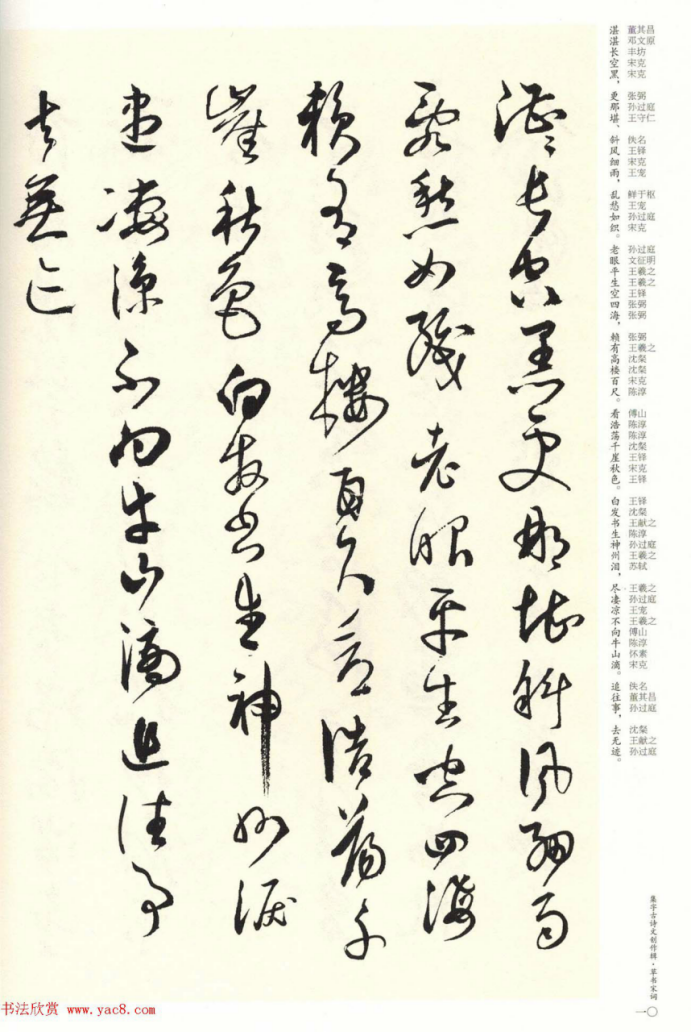 董其昌
邓文原
丰坊
宋克
宋克
张弼
孙过庭
王守仁
佚名
王铎
宋克
王宠
鲜于枢
王宠
孙过庭
宋克
孙过庭
文征明
王羲之
王羲之
王铎
张弼
张弼
张弼
王羲之
沈粲
沈粲
宋克
陈淳
傅山
陈淳
陈淳
沈粲
王铎
宋克
王铎
王铎
沈粲
王献之
陈淳
孙过庭
王羲之
苏轼
王羲之
孙过庭
王宠
王羲之
傅山
陈淳
怀素
宋克
佚名
董其昌
孙过庭
沈粲
王献之
孙过庭
湛湛长空黑，更那堪、斜风细雨，乱愁如织。老眼平生空四海，赖有高楼百尺。看浩荡千崖秋色。白发书生神州泪，尽凄凉不向牛山滴。追往事，去无迹。
集字古诗文创作辑·草书宋词
一〇
湛湛長空黑更那堪斜風細雨
亂愁如織老眼平生空四海
賴有高樓百尺看浩蕩千
崖秋色白髮書生神州淚
盡淒涼不向牛山滴追往事
去無迹
书法欣赏 www.yac8.com